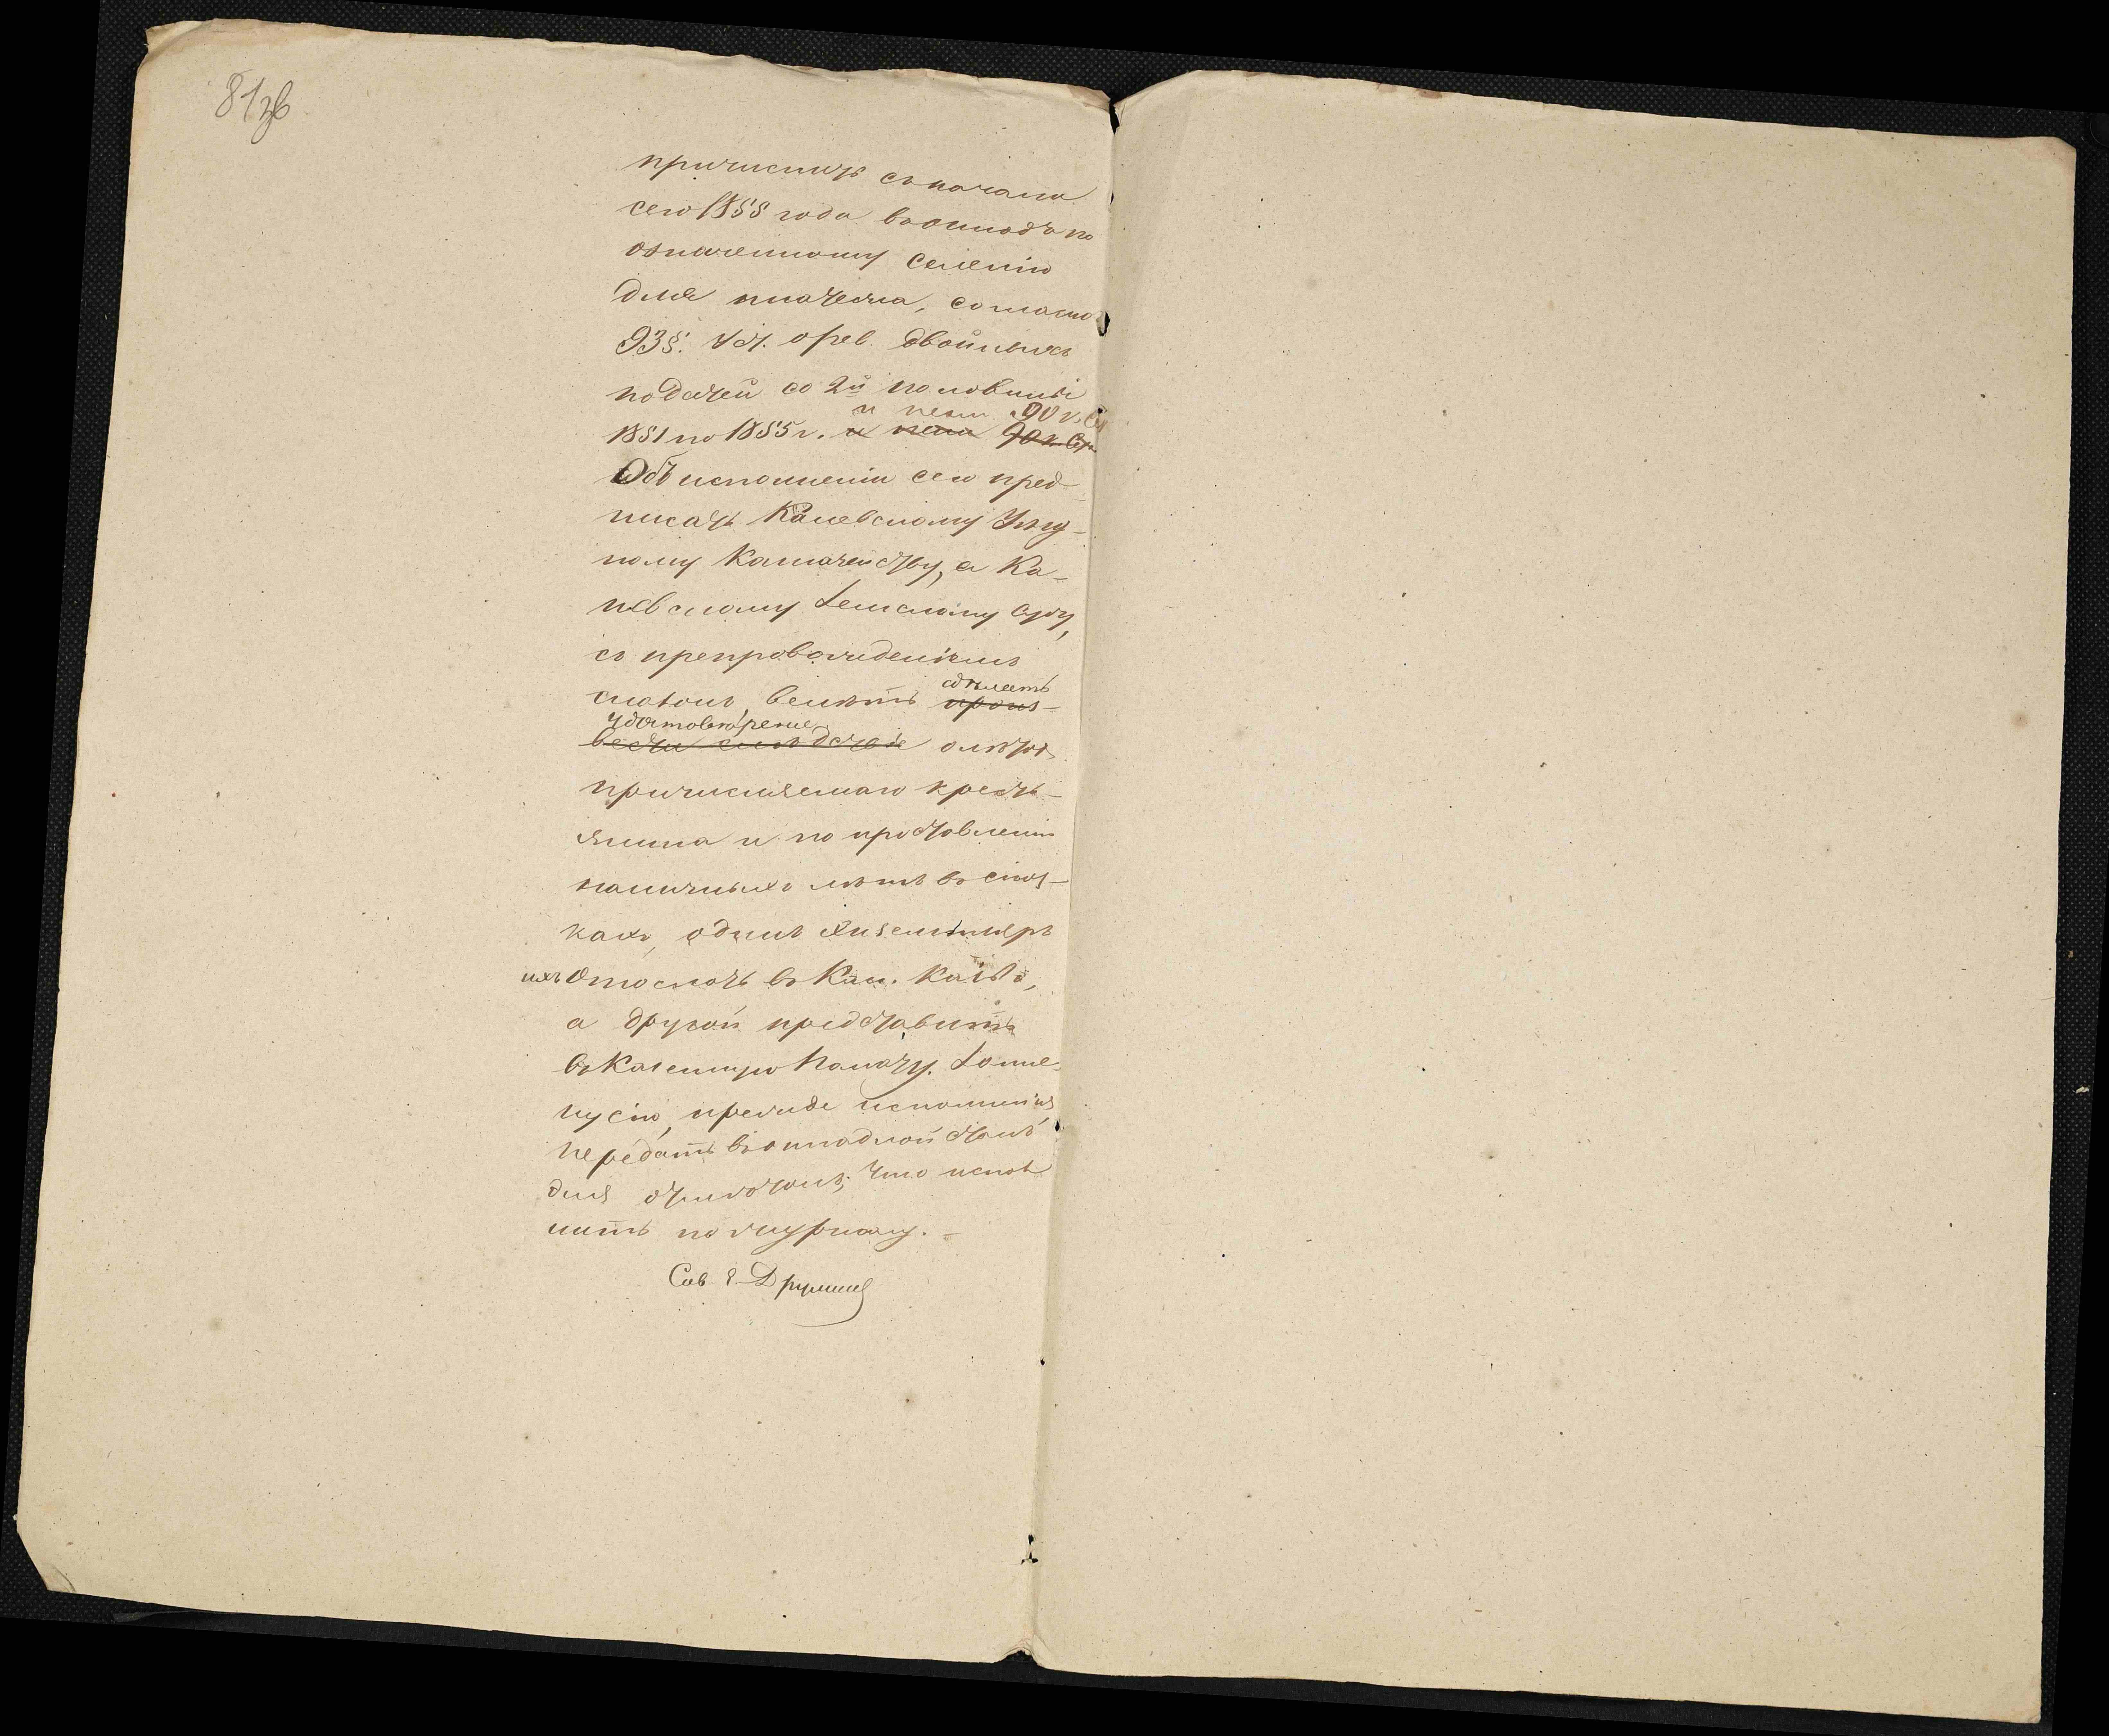 81 зв
причислить съ начала
сего 1855 года въ окладъ по
означенному селенію
для платежа, согласно
93 §. Уст. о рев. двойныхъ
податей со 2й половины
и пени 90 к. Сер
1851 по 1855 г. и пени 90 к. Сер
Объ исполненіи сего пред-
писать Каневскому Уезд-
ному Казначейству, а Ка-
невскому Земскому Суду,
съ препровожденіемъ
сказокъ, велѣть произ-
сдѣлать
удостовѣреніе
вести слѣдствіе о лѣтахъ
причисляемаго кресть-
янина и по проставленіи
наличныхъ лѣтъ въ сказ-
кахъ, одинъ экземпляръ
ихъ отослать въ Каз. Казнач.,
а другой представить
въ Казенную Палату. Копіе
сію, прежде исполненія
передать въ окладной столъ
для отмѣтокъ; что испол
нить по журналу. –
Сов.